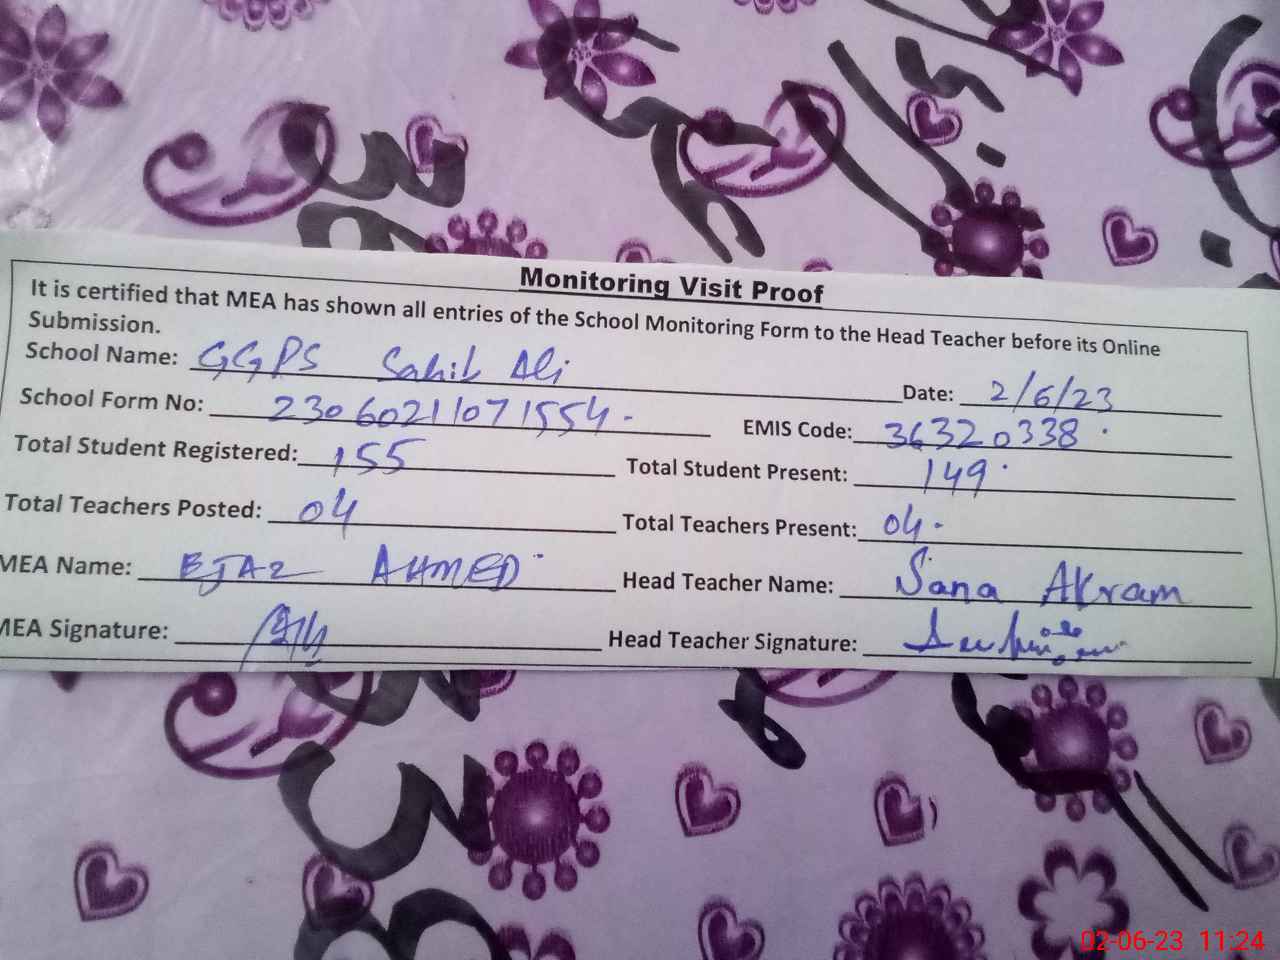 Monitoring Visit Proof
It is certified that MEA has shown all entries of the School Monitoring Form to the Head Teacher before its Online
Submission.
School Name: GGPS Sahib Ali Date: 2/6/23
School Form No: 23060211071554. EMIS Code: 36320338.
Total Student Registered: 155 Total Student Present: 149.
Total Teachers Posted: 04 Total Teachers Present: 04.
MEA Name: EJAZ AHMED Head Teacher Name: Sana Akram
MEA Signature: Head Teacher Signature:
02-06-23 11:24